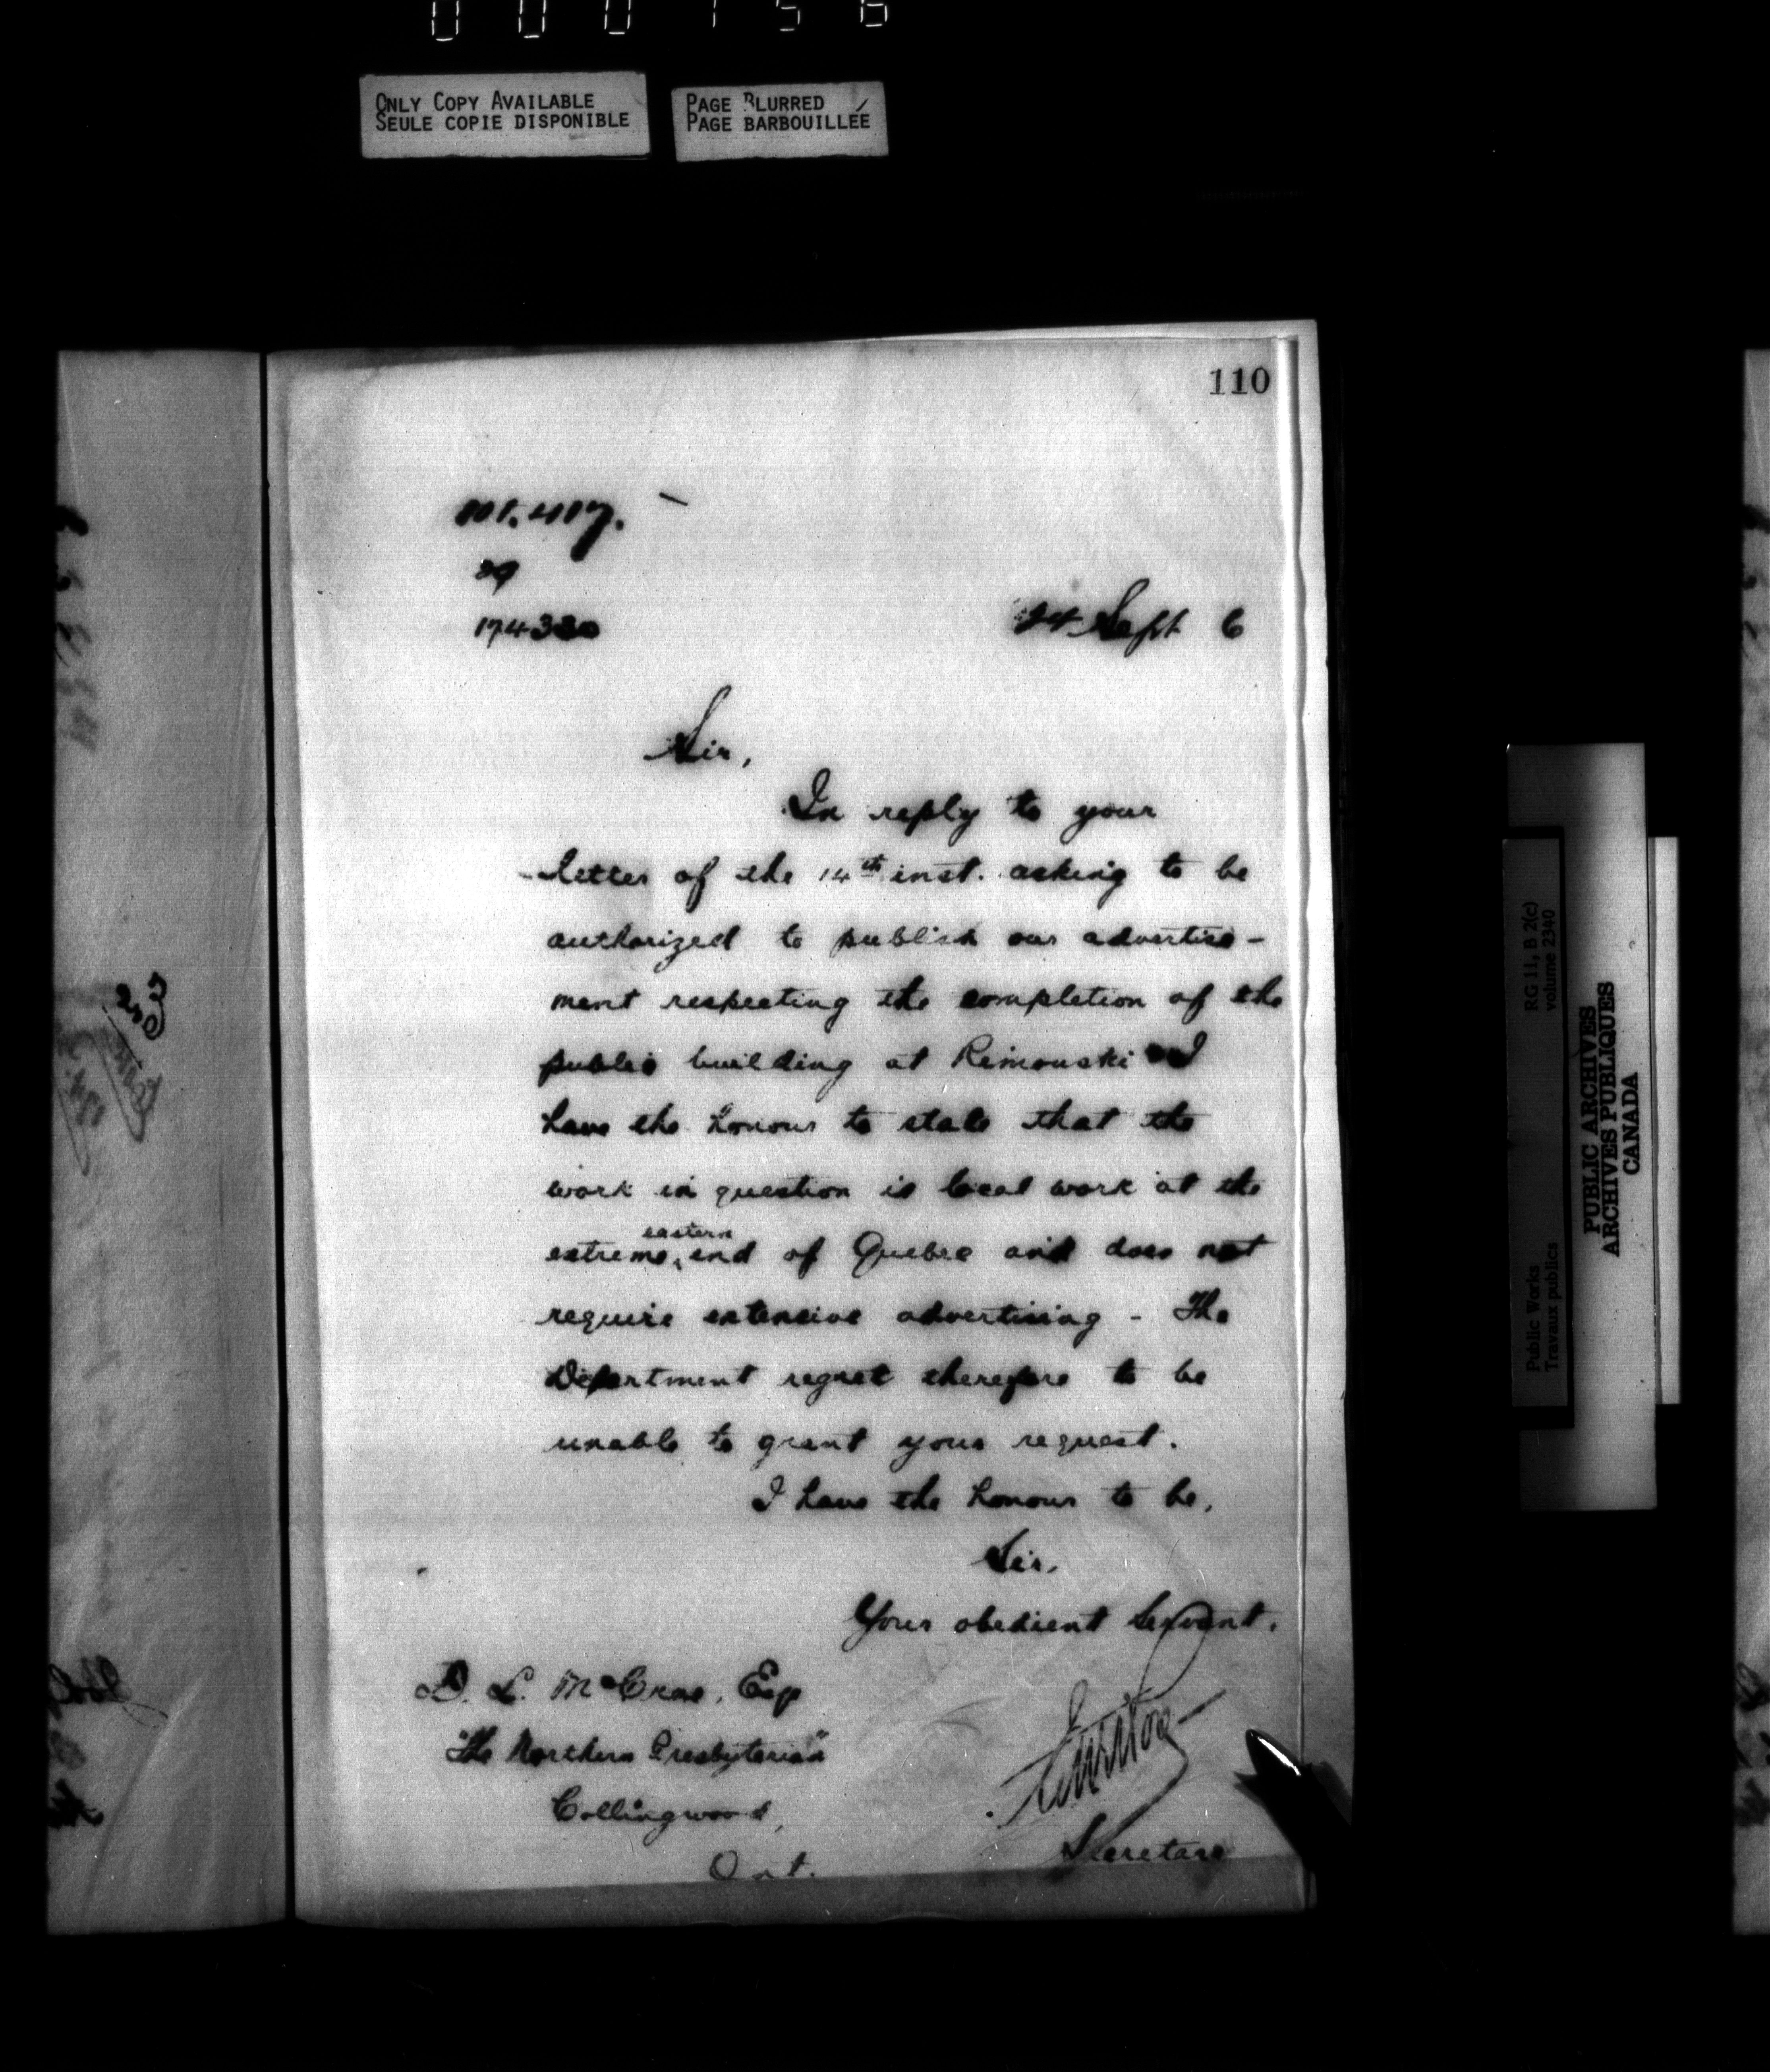 000156
ONLY COPY AVAILABLE
SEULE COPIE DISPONIBLE
PAGE BLURRED
PAGE BARBOUILLÉE
110
24 Sept 6
Sir,
In reply to your
letter of the 14th inst. asking to be
authorized to publish our advertise-
ment respecting the completion of the
public building at Rimouski I
have the honour to state that the
work in question is local work at the
extreme eastern end of Quebec and does not
require extensive advertising - The
Department regret therefore to be
unable to grant your request.
I have the honour to be,
Sir,
Your obedient Servant.
D. L. McCrae, Esq
"The Northern Presbyterian"
Collingwood,
Ont.
Secretary
Public Works
Travaux publics
RG 11, B 2(c)
volume 2340
PUBLIC ARCHIVES
ARCHIVES PUBLIQUES
CANADA